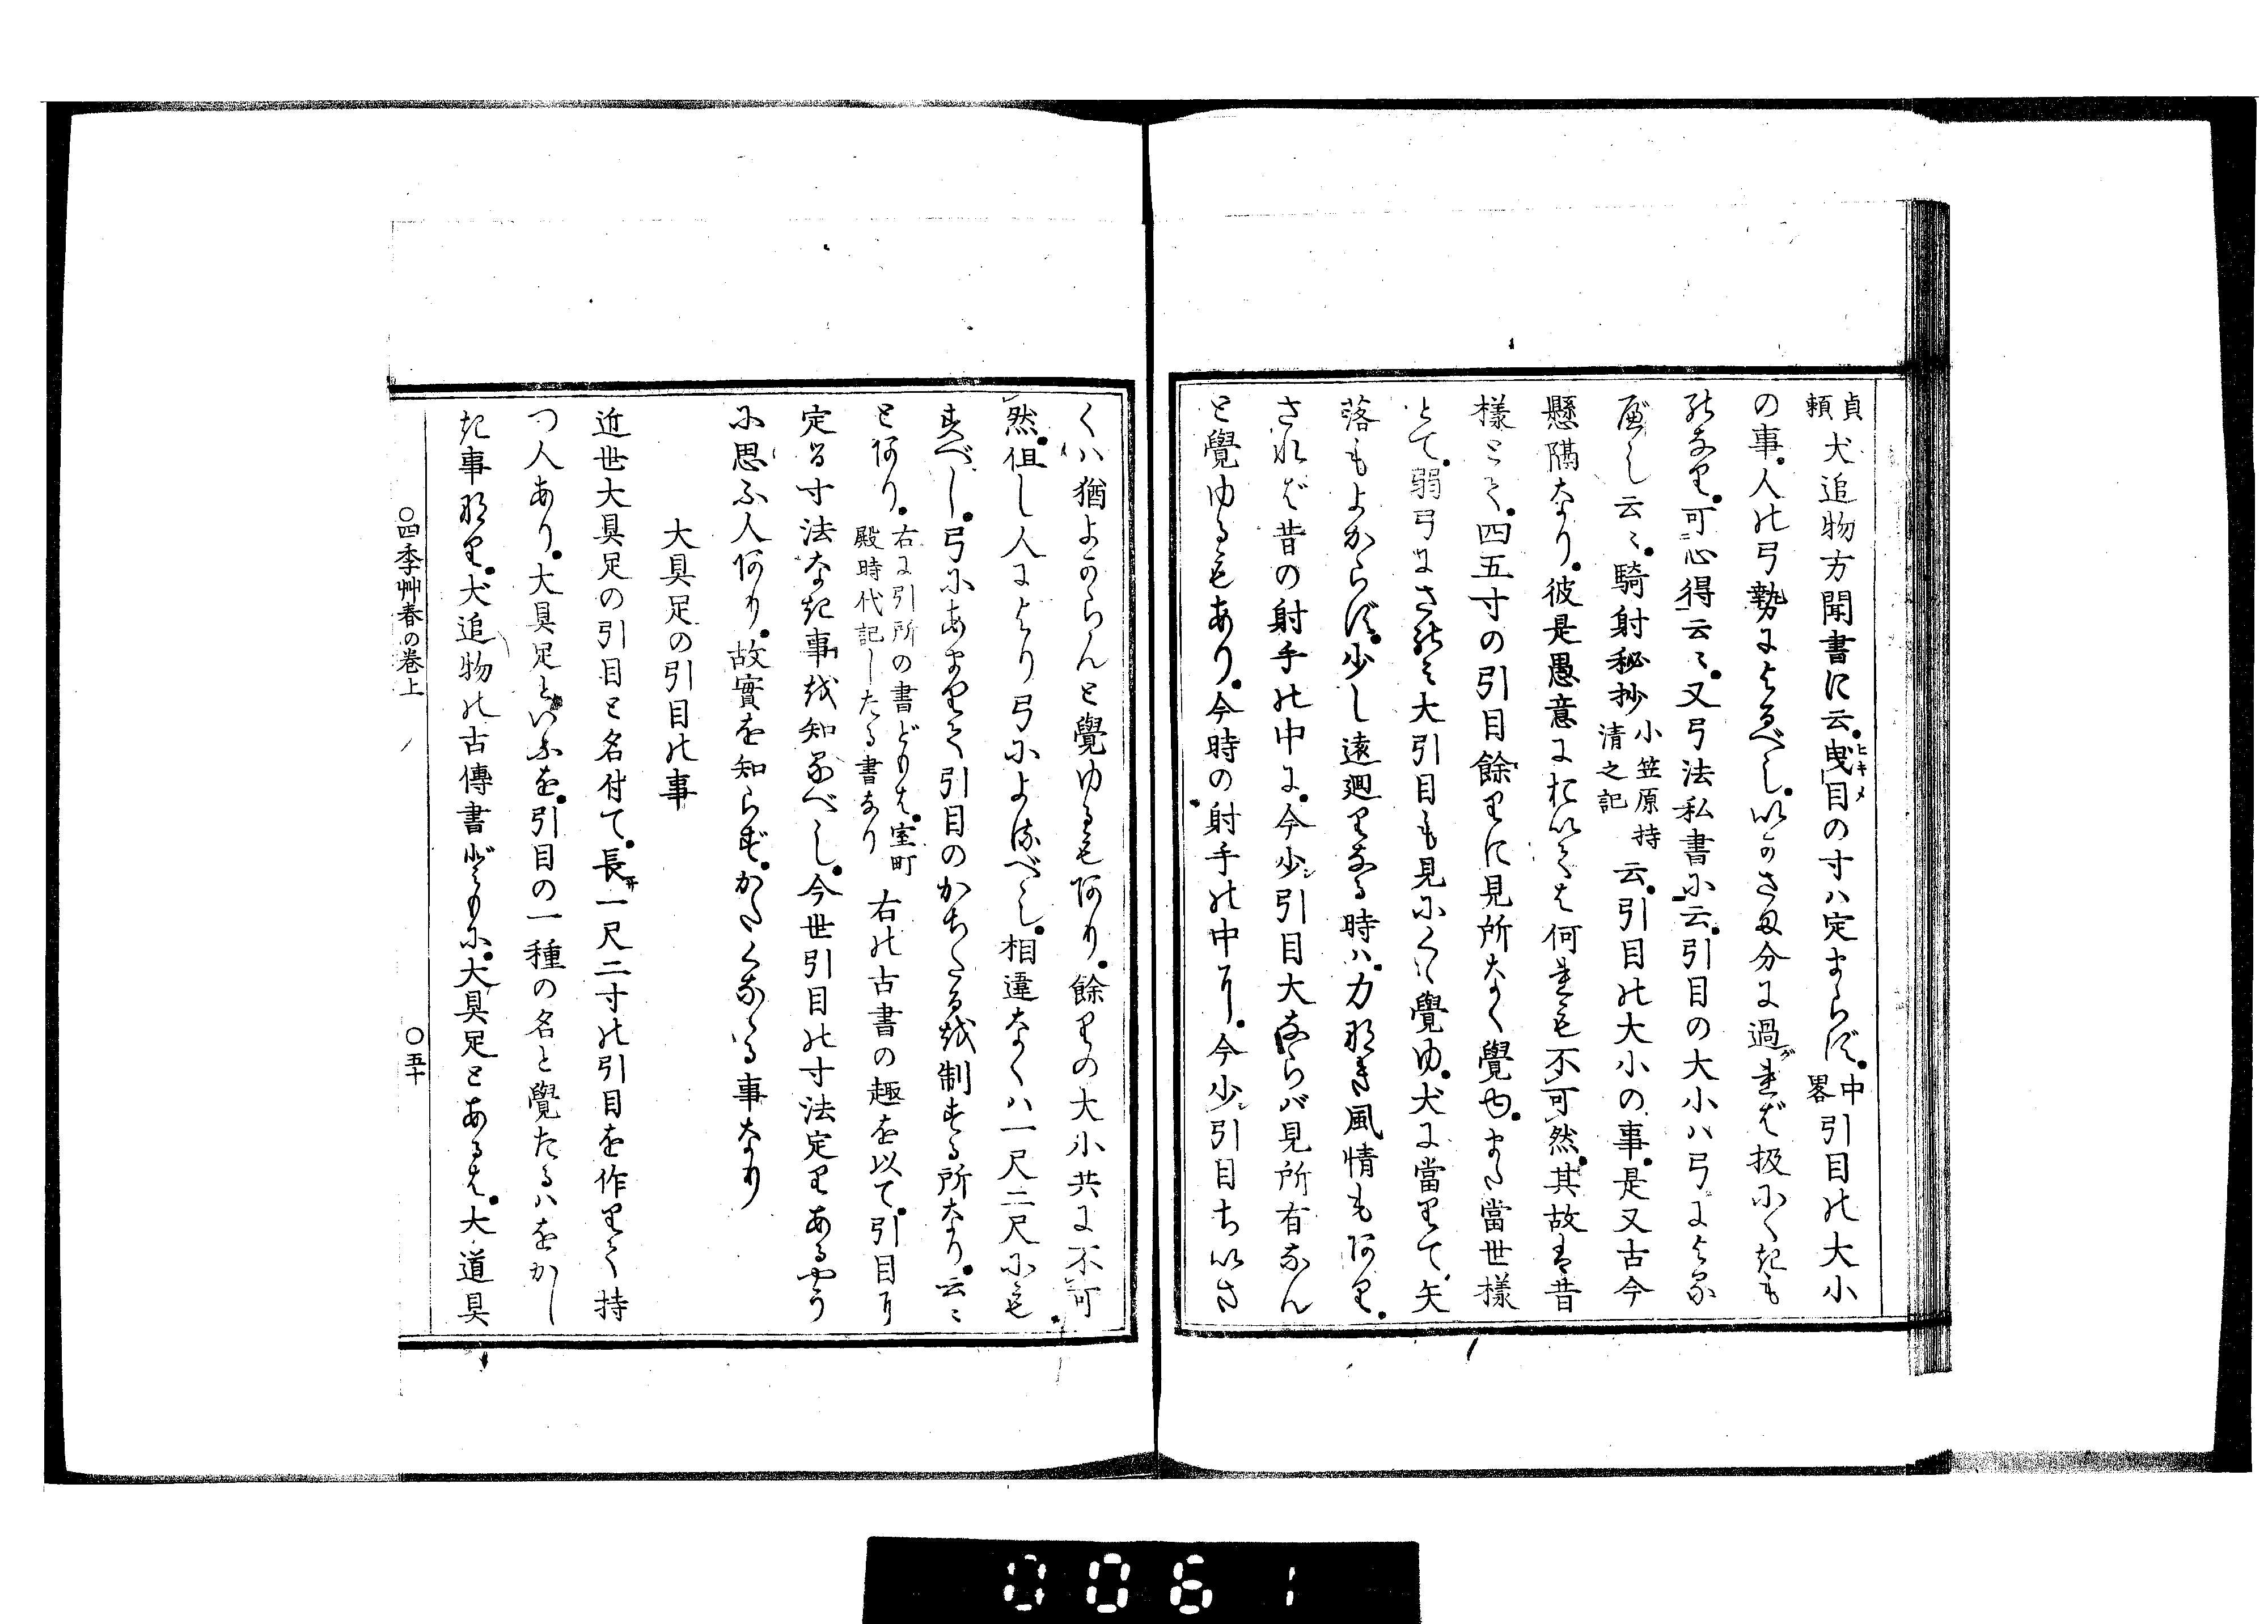 貞頼犬追物方聞書に云。曳目の寸ハ定まらず。中畧引目の大小
の事。人の弓勢によるべし。いかさま分に過ればあつかひ扱にくきも
のなり。可心得云〻。又弓法私書に云。引目の大小ハ弓による
べし云〻。騎射秘抄小笠原持清之記云。引目の大小の事。是又古今
懸隔なり。彼是愚意におゐては何れも不可然。其故は昔
様とて。四五寸の引目餘りに見所なく覺ゆ。また當世様
とて。弱弓にさのみ大引目も見にくく覺ゆ。犬に當りて。矢
落もよからず。少し遠廻りなる時ハ。力なき風情もあり。
されば昔の射手の中に。今少引目大ならバ見所有なん
と覺ゆるもあり。今時の射手の中に。今少引目ちいさ
くハ猶よからんと覺ゆるもあり。餘りの大小共に不可
然。但し人により弓によるべし。相違なくハ一尺二尺にも
すべし。弓にあまりて引目のかちたるを制する所なり。云〻
とあり。右に引所の書どもは。室町殿時代記したる書なり 右の古書の趣を以て。引目に
定る寸法なき事を知るべし。今世引目の寸法定りあるやう
に思ふ人あり。故實を知らず。かたくななる事なり
大具足の引目の事
近世大具足の引目と名付て。長サ一尺二寸の引目を作りて持
つ人あり。大具足といふを。引目の一種の名と覺たるハをかし
き事なり。犬追物の古傳書どもに。大具足とあるは。大道具
○四季艸春の巻上
○五十
0061